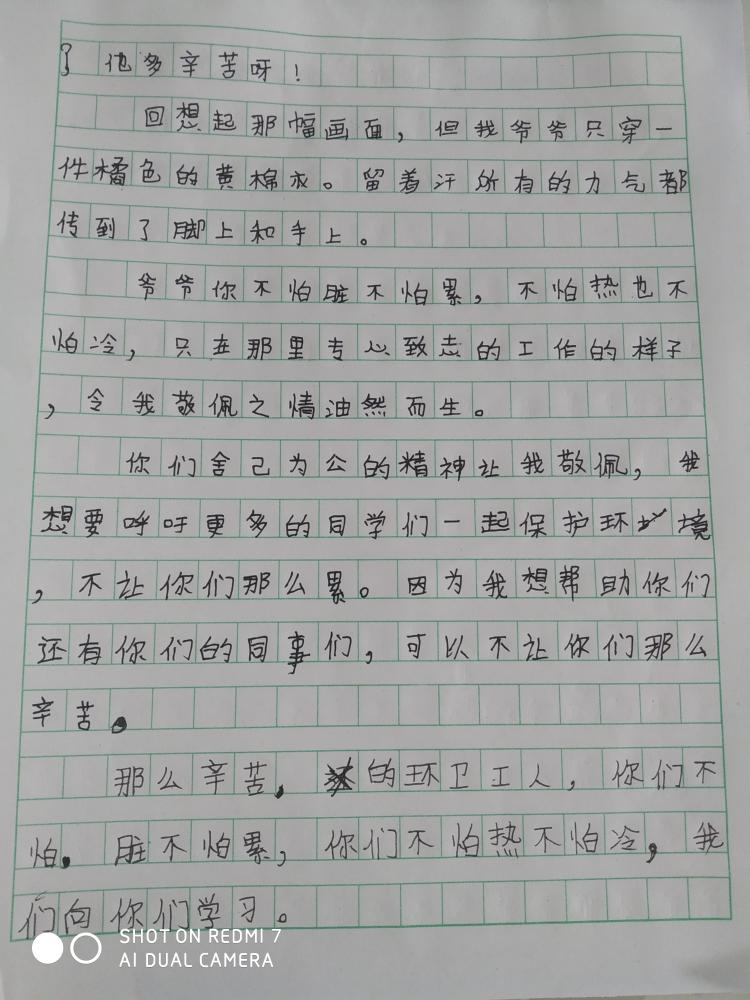 他多辛苦呀！
回想起那幅画面，但我爷爷只穿一
件橘色的黄棉衣。留着汗所有的力气都
传到了脚上和手上。
爷爷你不怕脏不怕累，不怕热也不
怕冷，只在那里专心致志的工作的样子
，令我敬佩之情油然而生。
你们舍己为公的精神让我敬佩，我
想要呼吁更多的同学们一起保护环境
，不让你们那么累。因为我想帮助你们
还有你们的同事们，可以不让你们那么
辛苦。
那么辛苦，的环卫工人，你们不
怕，脏不怕累，你们不怕热不怕冷，我
们向你们学习。
SHOT ON REDMI 7
AI DUAL CAMERA